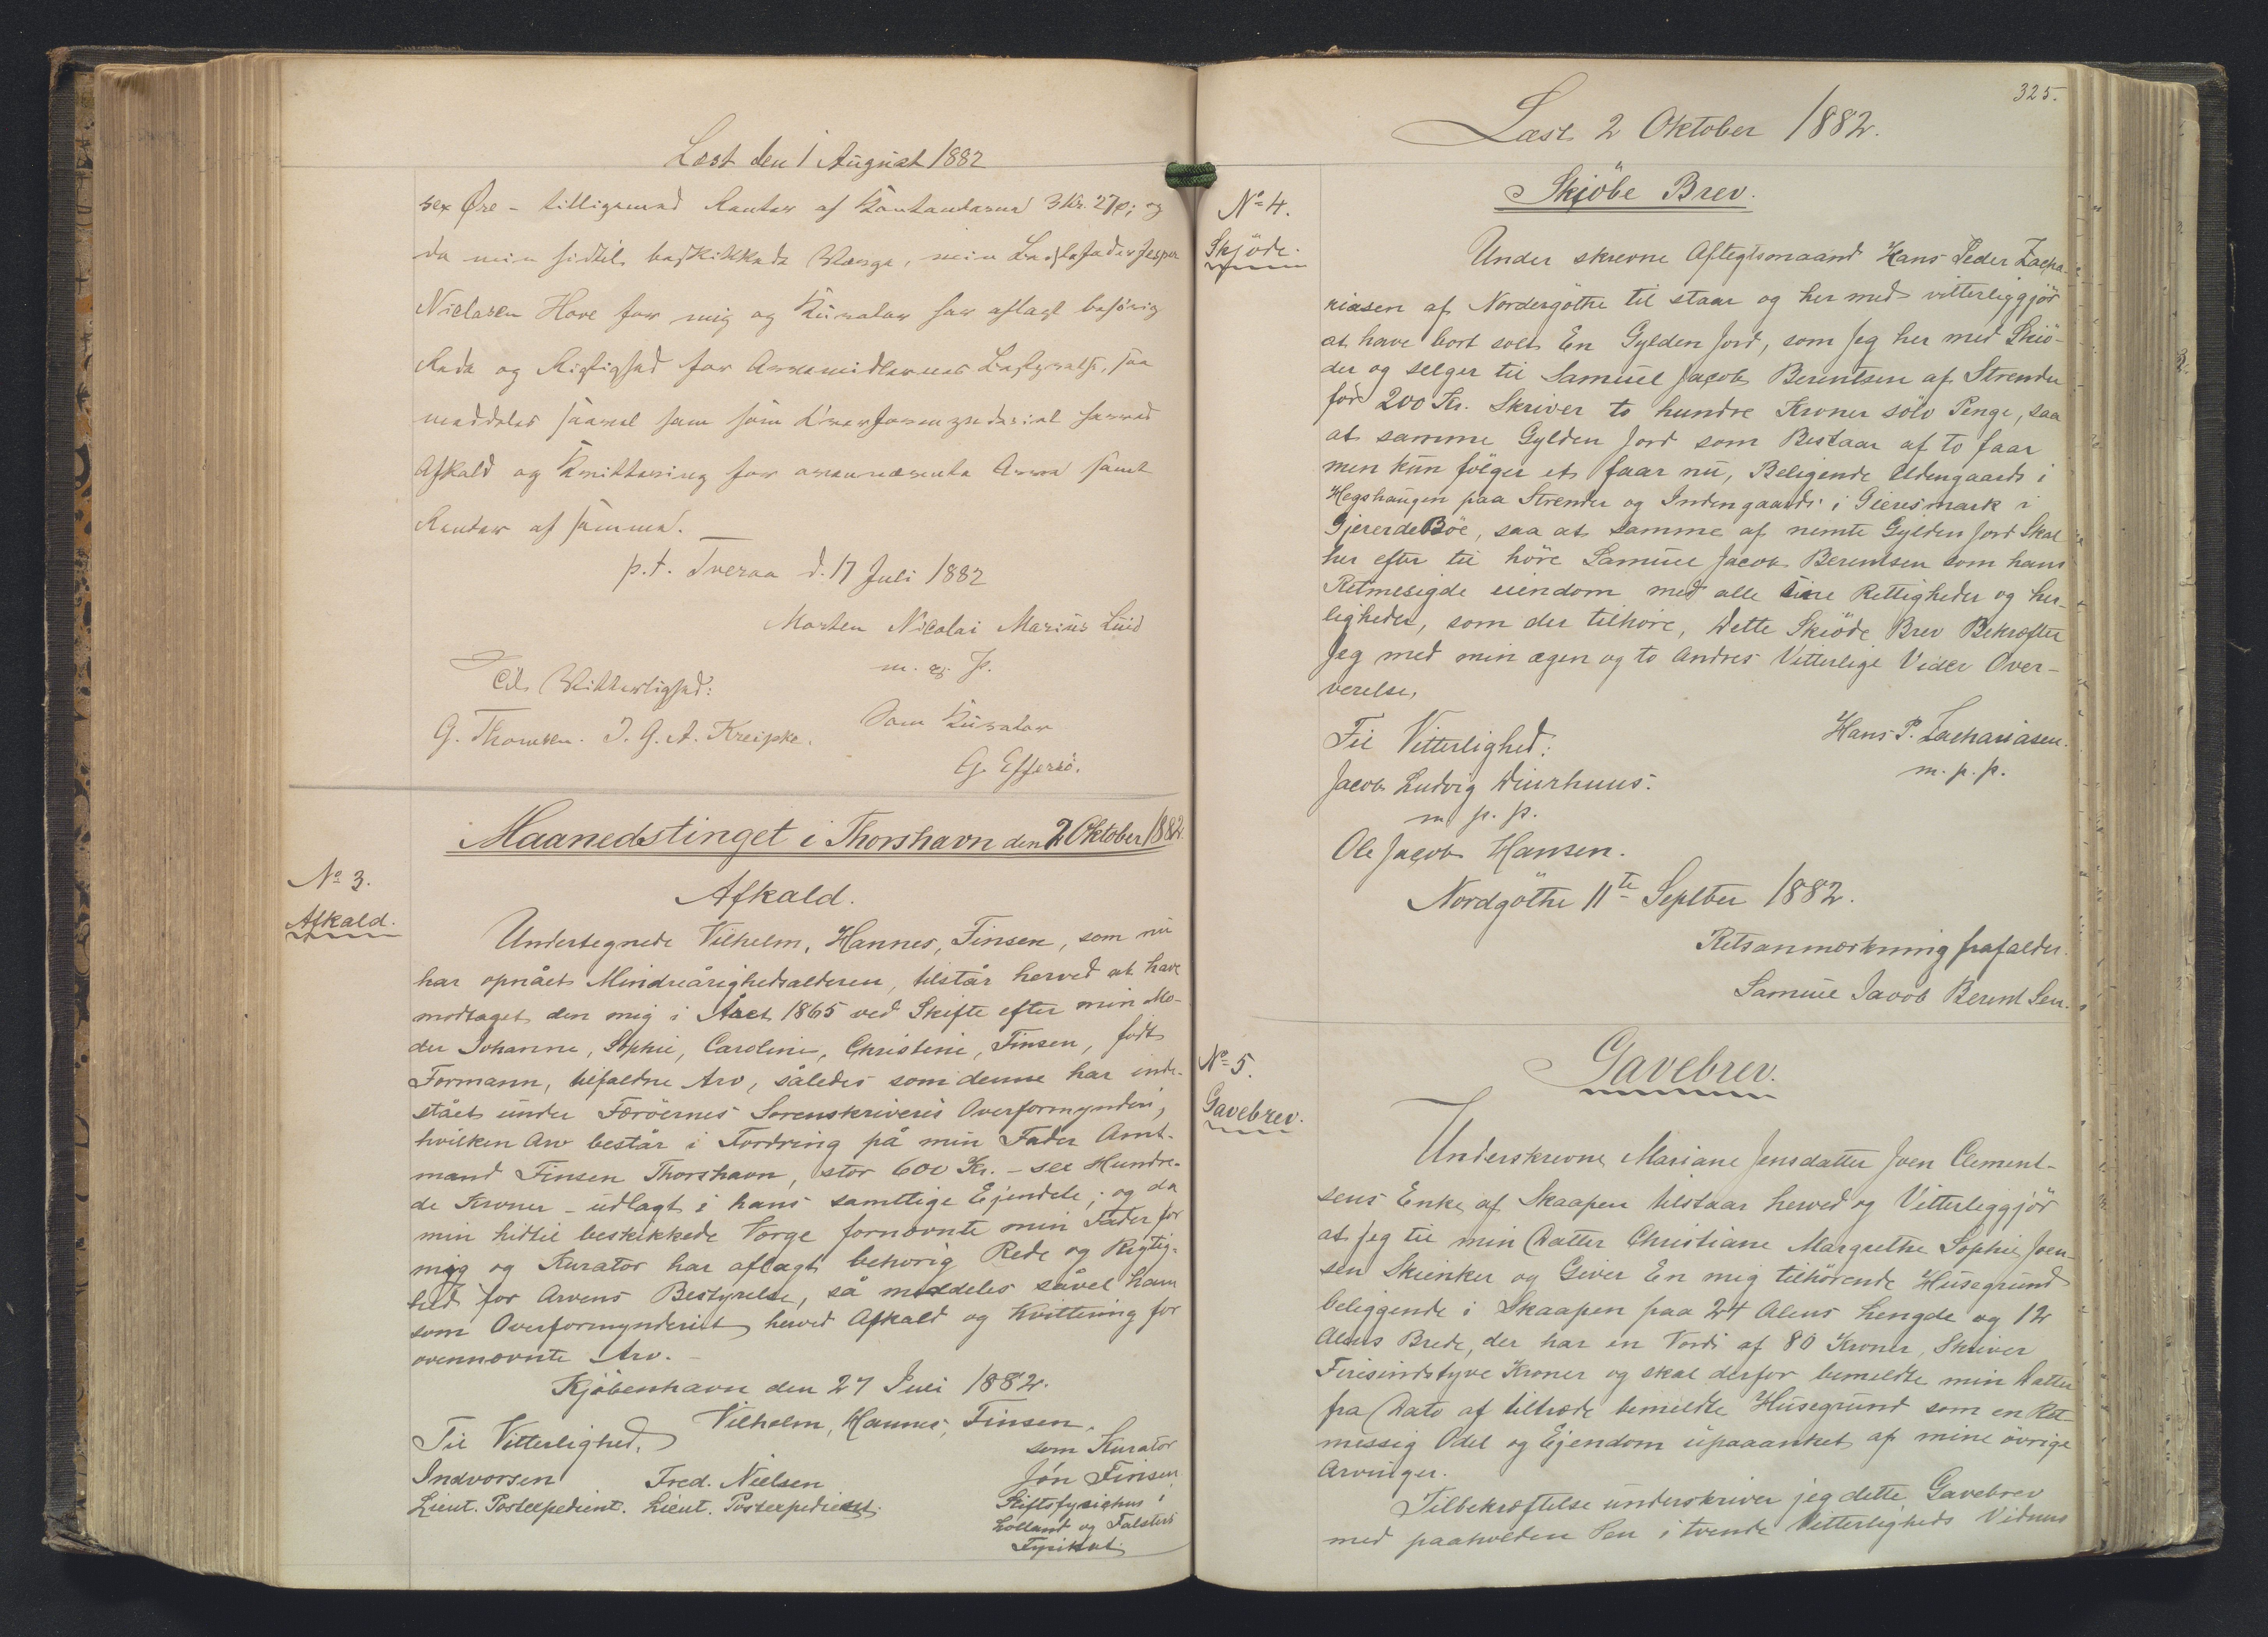 Læst den 1 August 1882
sex Øre - tilligemed Renter af Kontanterne 3 Kr. 27 ø; og
da min hidtil beskikkede Værge, min Bedstefader Jesper
Niclasen Hove for mig og Kurator har aflagt behörig
Rede og Rigtighed for Arvemidlernes Bestyrelse, saa
meddeles saavel ham som Overformynderiet herved
Afkald og Kvittering for ovennævnte Arv samt
Renter af samme.
p.t. Tveraa d. 17 Juli 1882
Morten Nicolai Marius Luid
m. ej. P.
Til Vitterlighed:
Som Kurator
G. Thomsen. J. G. A. Kreipke.
G. Effersö.
Maanedstinget i Thorshavn den 2 Oktober 1882.
No 3.
Afkald.
Afkald.
Undertegnede Vilhelm, Hannes, Finsen, som nu
har opnået Mindreårighedsalderen, tilstår herved at have
modtaget den mig i Året 1865 ved Skifte efter min Mo-
der Johanne, Sophie, Caroline, Christine, Finsen, født
Formann, tilfaldne Arv, således som denne har inde-
stået under Færöernes Sorenskriveris Overformynderi,
hvilken Arv består i Fordring på min Fader Amt-
mand Finsen Thorshavn, stor 600 Kr. - sex Hundre-
de Kroner - udlagt i hans samtlige Ejendele; og da
min hidtil beskikkede Værge fornævnte min Fader for
mig og Kurator har aflagt behörig Rede og Rigtig-
hed for Arvens Bestyrelse, så meddeles såvel ham
som Overformynderiet herved Afkald og Kvittering for
ovennævnte Arv. -
Kjöbenhavn den 27 Juli 1882.
Vilhelm, Hannes, Finsen.
Til Vitterlighed.
som Kurator
Indvorsen Fred. Nielsen
Jón Finsen
Lieut. Postexpedient. Lieut. Postexpedient.
Stiftsfysighus i
Lolland og Falsters
Fysikat.
325.
Læst 2 Oktober 1882.
No 4.
Skjöde.
Skjöbe Brev.
Under skrevne Aftegtsmaand Hans Peder Zacha-
riasen af Nordergöthe til staar og her med vitterliggjör
at have bort solt En Gylden Jord, som Jeg her med Skiö-
der og selger til Samuel Jacob Berentsen af Strender
for 200 Kr. Skriver to hundre Kroner sölv Penge, saa
at samme Gylden Jord som Bestaar af to faar
men kun fölger et faar nu, Beligende Udengaards i
Hegshaugen paa Strender og Indengaards i Gieresmark i
Gjererde Böe, saa at samme af nemte Gylden Jord Skal
her efter til höre Samuel Jacob Berentsen som hans
Retmesigde eiendom med alle sine Rettigheder og her-
ligheder, som der tilhöre, Dette Skiöde Brev Bekræfter
Jeg med min egen og to Andres Vitterlige Vider Over-
verelse.
Til Vitterlighed:
Hans P. Zachariasen.
m. p. p.
Jacob Ludvig Diurhuus.
m. p. p.
Ole Jacob Hansen.
Nordgöthe 11te Septber 1882.
Retsanmærkning frafalder.
Samuel Jacob Berent Sen.
No 5.
Gavebrev.
Gavebrev.
Underskrevne Mariane Jensdatter Joen Clement-
sens Enke af Skaapen tilstaar herved og Vitterliggjör
at jeg til min Datter Christiane Margrethe Sophie Joen-
sen Skienker og Giver En mig tilhörende Husegrund
beliggende i Skaapen paa 24 Alens Lengde og 12
Alens Brede, der har en Verdi af 80 Kroner, Skriver
Firesindstyve Kroner og skal derfor bemeldte min Datter
fra Dato af tiltræde bemeldte Husegrund som en Ret-
messig Odel og Ejendom upaaanket af mine övrige
Arvinger.
Tilbekræftelse underskriver jeg dette Gavebrev
med paaholden Pen i tvende Vitterligheds Vidners